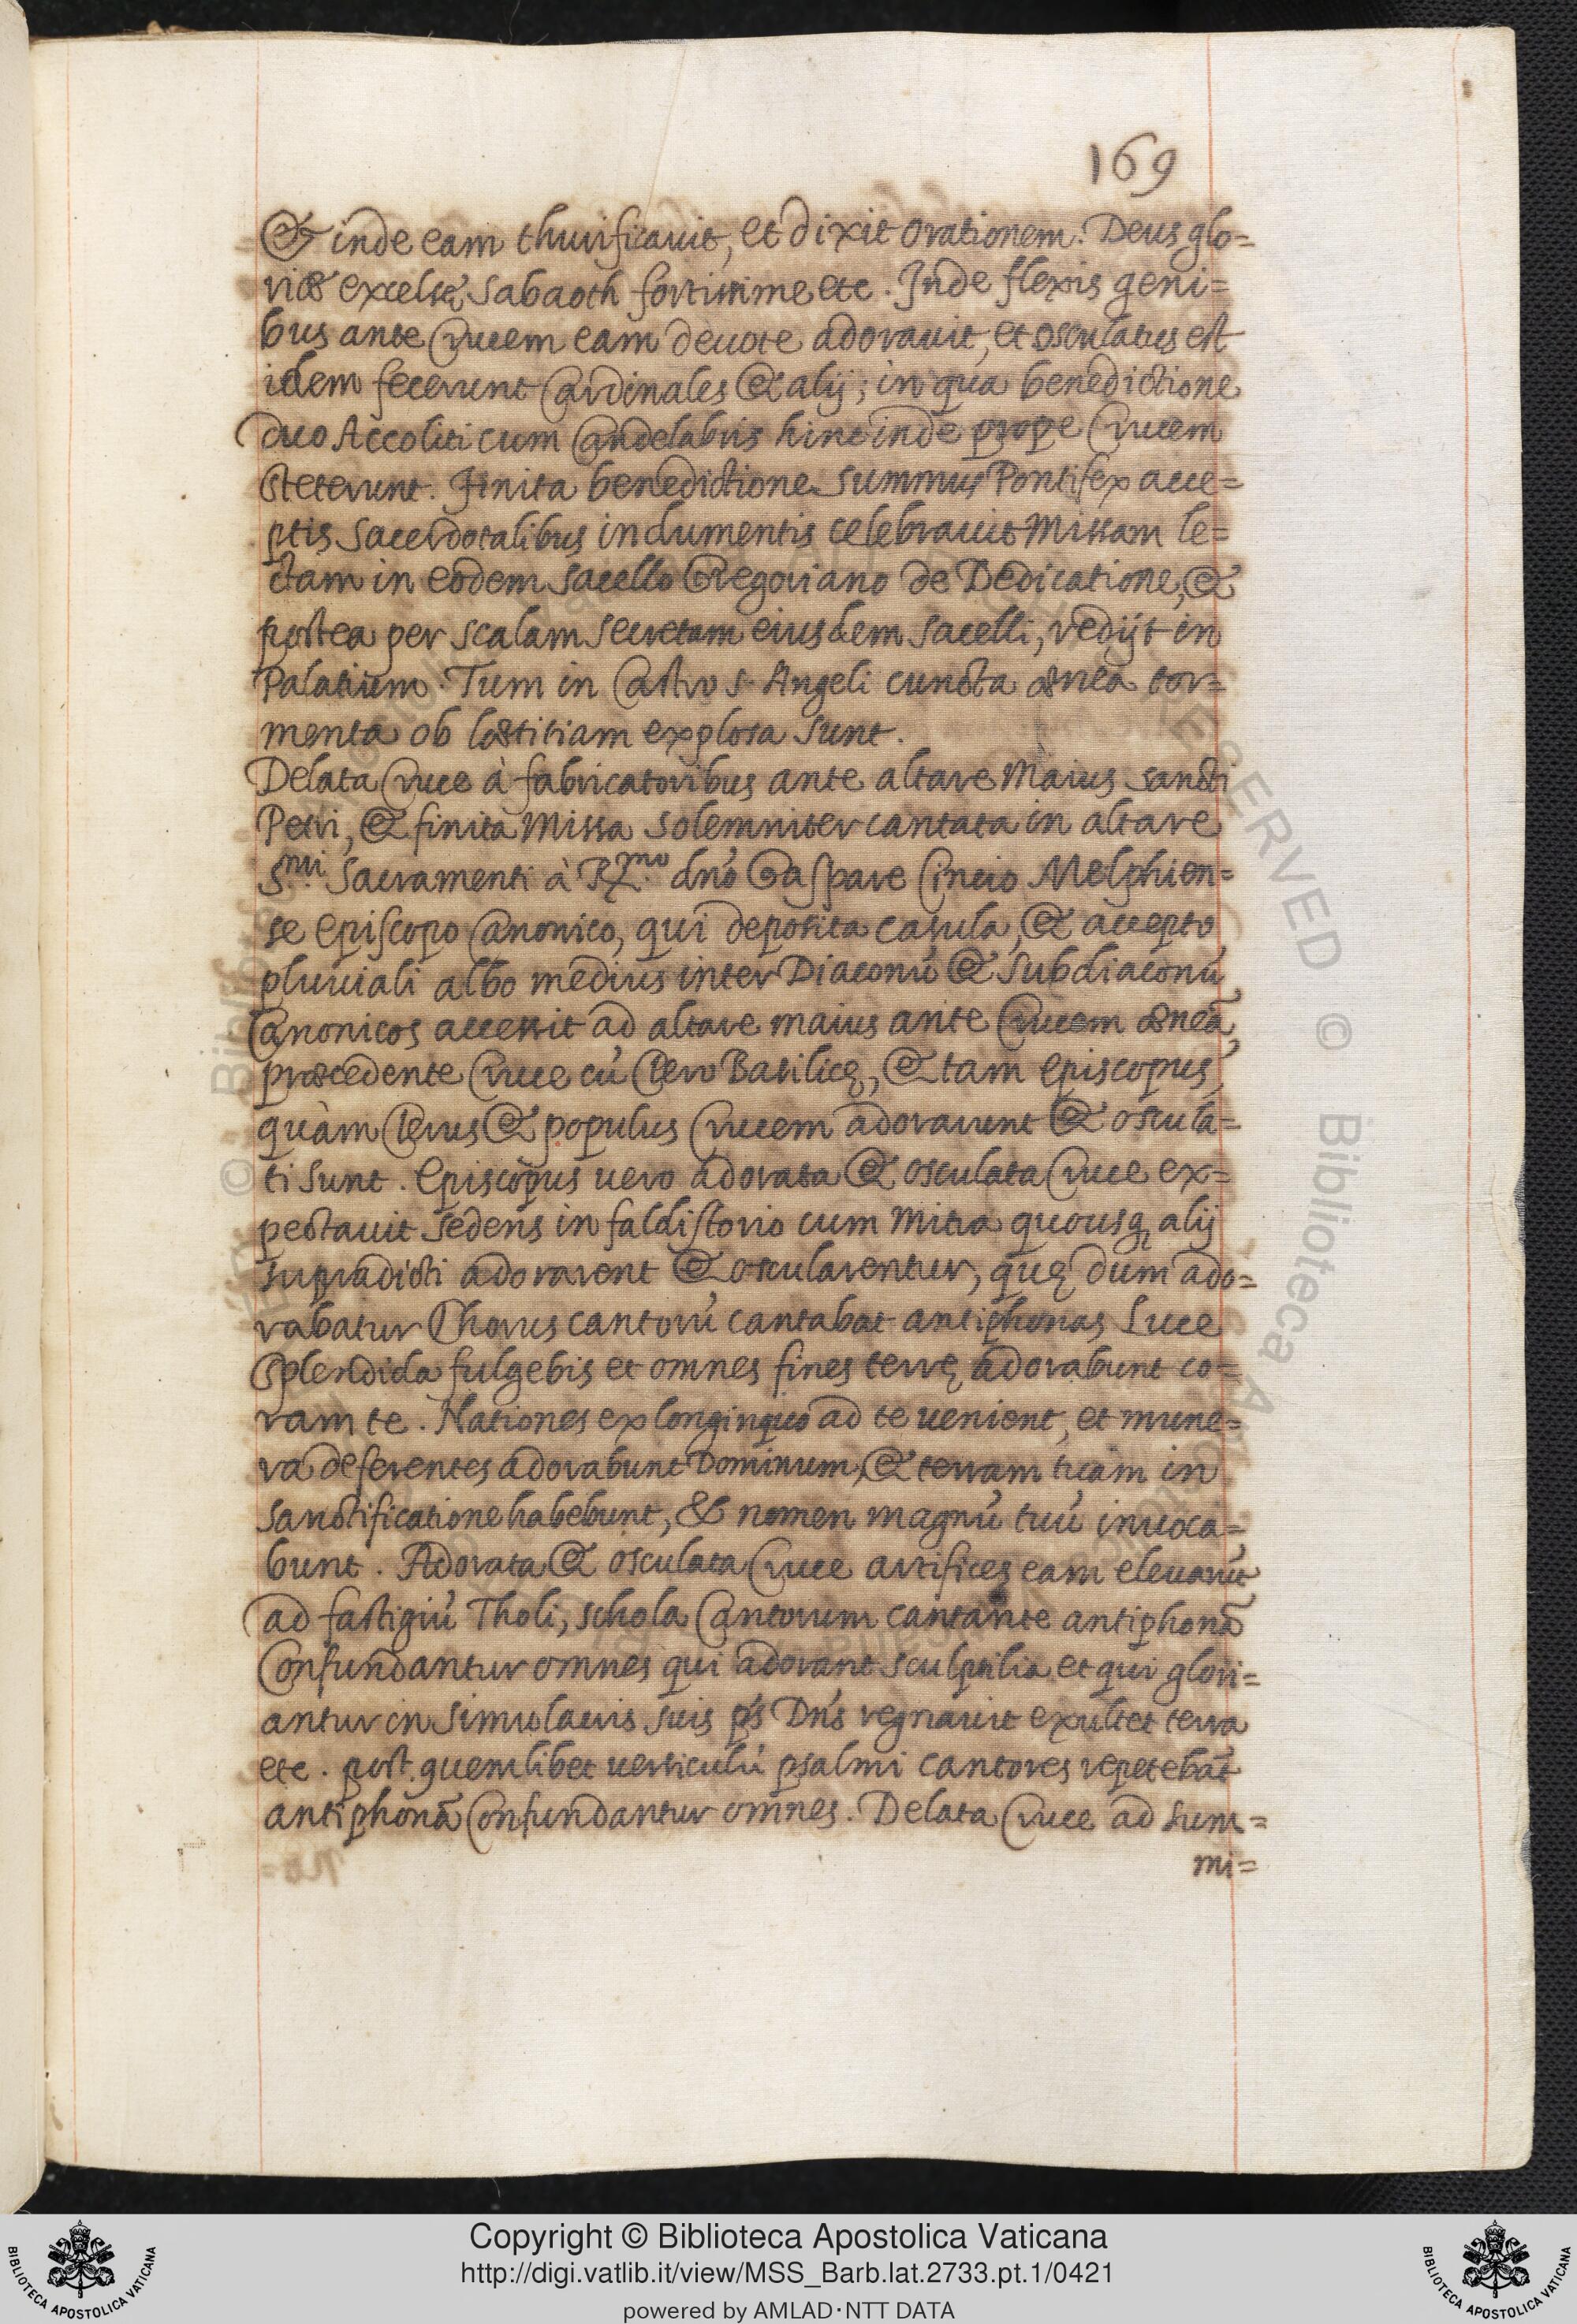 169
Et inde eam thurificauit, et dixit orationem. Deus glo=
riæ excelsę sabaoth fortissime etc. Inde flexis geni=
bus ante Crucem eam deuote adorauit, et osculatus est
idem fecerunt Cardinales & alij; in qua benedictione
duo Accoliti cum Candelabris hinc inde prope Crucem
steterunt. Finita benedictione Summus Pontifex acce=
ptis sacerdotalibus indumentis celebrauit Missam le=
ctam in eodem sacello Gregoriano de Dedicatione, &
postea per scalam secretam eiusdem sacelli, redijt in
Palatium. Tum in Castro S. Angeli cuncta ænea tor=
menta ob lætitiam explosa sunt.
Delata Cruce à fabricatoribus ante altare Maius sancti
Petri, & finita Missa solemniter cantata in altare
S.mi Sacramenti à R.mo dn̄o Gaspare Cincio Melphien=
se Episcopo Canonico, qui deposita casula, & accepto
pluuiali albo medius inter Diaconū & Subdiaconū
Canonicos accessit ad altare maius ante Crucem æneā,
præcedente Cruce cū Clero Basilicę, & tam Episcopus,
quàm Clerus & populus Crucem adorarunt & oscula=
ti sunt. Episcopus uero adorata & osculata Cruce ex=
pectauit sedens in faldistorio cum Mitra quousq; alij
supradicti adorarent & oscularentur, quę dum ado=
rabatur Chorus cantorū cantabat antiphonas Luce
splendida fulgebis et omnes fines terrę adorabunt co=
ram te. Nationes ex longinquo ad te uenient, et mune=
ra deferentes adorabunt Dominum, & terram tuam in
sanctificatione habebunt, & nomen magnū tuū inuoca=
bunt. Adorata & osculata Cruce artifices eam eleuarūt
ad fastigiū Tholi, schola Cantorum cantante antiphonā
Confundantur omnes qui adorant sculptilia et qui glori=
antur in simulacris suis p̄s Dn̄s regnauit exultet terra
etc. post quemlibet uersiculū psalmi cantores repetebāt
antiphonā Confundantur omnes. Delata Cruce ad sum=
mi=
Copyright © Biblioteca Apostolica Vaticana
http://digi.vatlib.it/view/MSS_Barb.lat.2733.pt.1/0421
powered by AMLAD·NTT DATA
BIBLIOTECA APOSTOLICA VATICANA
BIBLIOTECA APOSTOLICA VATICANA